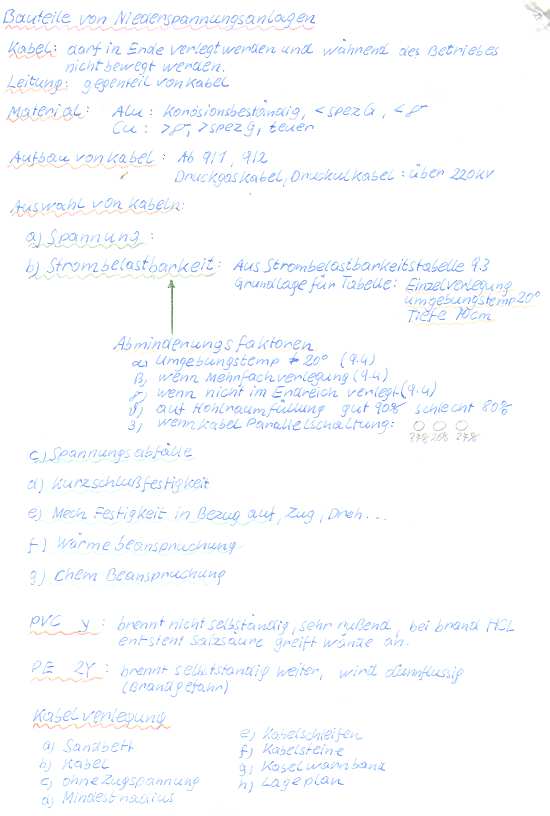 Bauteile von Niederspannungsanlagen
Kabel: darf in Erde verlegt werden und während des Betriebes
nicht bewegt werden.
Leitung: gegenteil von Kabel
Material: Alu: Korosionsbeständig, < spez G, < γ
Cu: > γ, > spez G, teuer
Aufbau von Kabel: Ab 9/1, 9/2
Druckgaskabel, Druckölkabel: über 220 kV
Auswahl von Kabeln:
a) Spannung:
b) Strombelastbarkeit: Aus Strombelastbarkeitstabelle 9.3
Grundlage für Tabelle: Einzelverlegung
umgebungstemp 20°
Tiefe 70cm
Abminderungsfaktoren
α) Umgebungstemp ≠ 20° (9.4)
β) wenn Mehrfachverlegung (9.4)
γ) wenn nicht im Erdreich verlegt (9.4)
δ) auf Hohlraumfüllung gut 90% schlecht 80%
3) wenn Kabel Parallelschaltung:
c) Spannungsabfälle
d) Kurzschlußfestigkeit
e) Mech Festigkeit in Bezug auf, Zug, Dreh...
f) Wärmebeanspruchung
g) Chem Beanspruchung
PVC y: brennt nicht selbständig, sehr rußend, bei brand HCL
entsteht Salzsäure greift wände an.
PE 2Y: brennt selbstständig weiter, wird dünnflüssig
(Brandgefahr)
Kabelverlegung
a) Sandbett
b) Kabel
c) ohne Zugspannung
d) Mindestradius
e) Kabelschleifen
f) Kabelsteine
g) Kabelwarnband
h) Lageplan